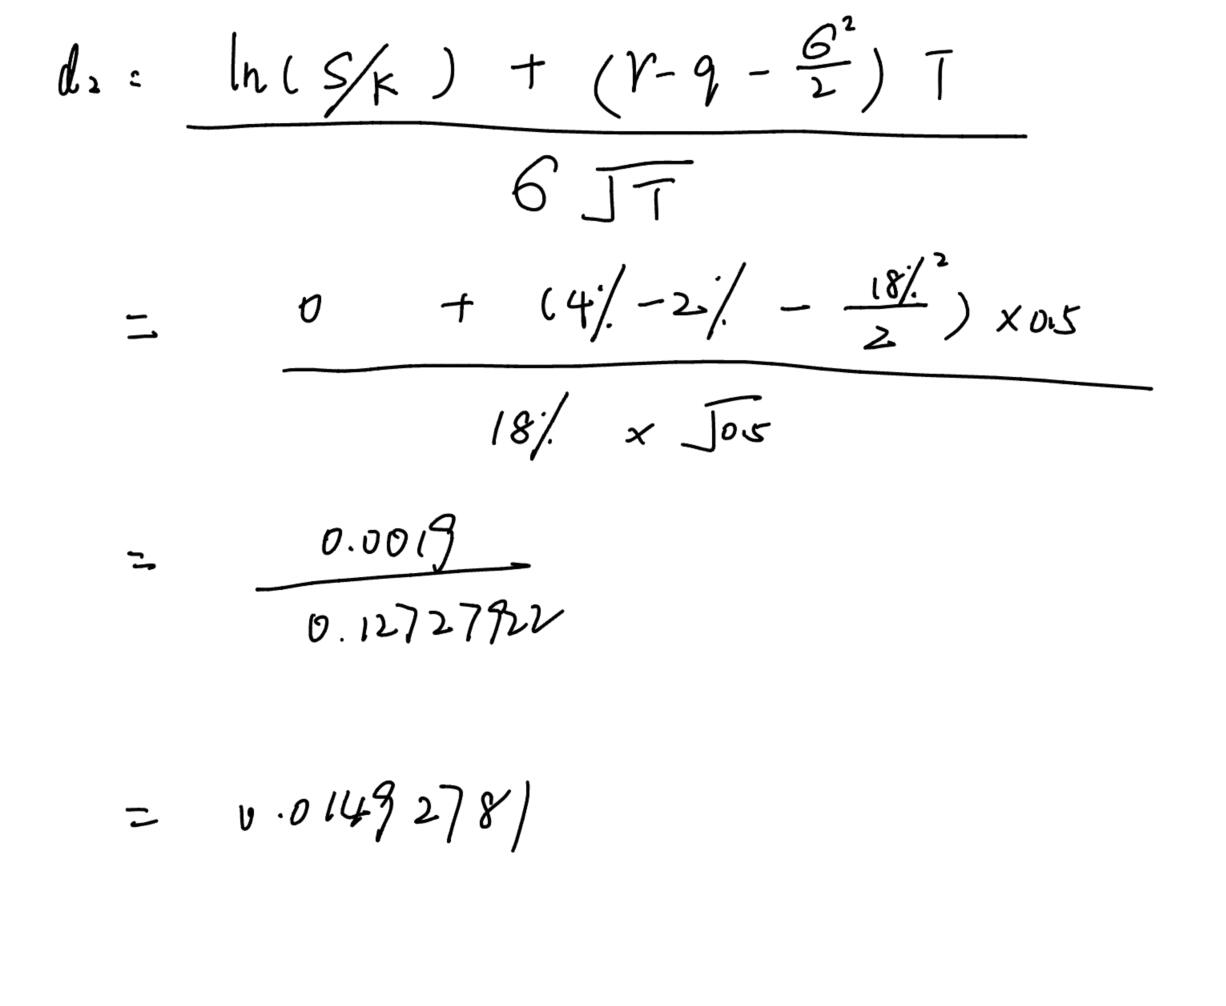 d₂ = ln(S/K) + (r-q - σ²/2) T
σ √T
= 0 + (4% - 2% - 18%²/2) × 0.5
18% × √0.5
= 0.0019
0.12727922
= 0.01492781